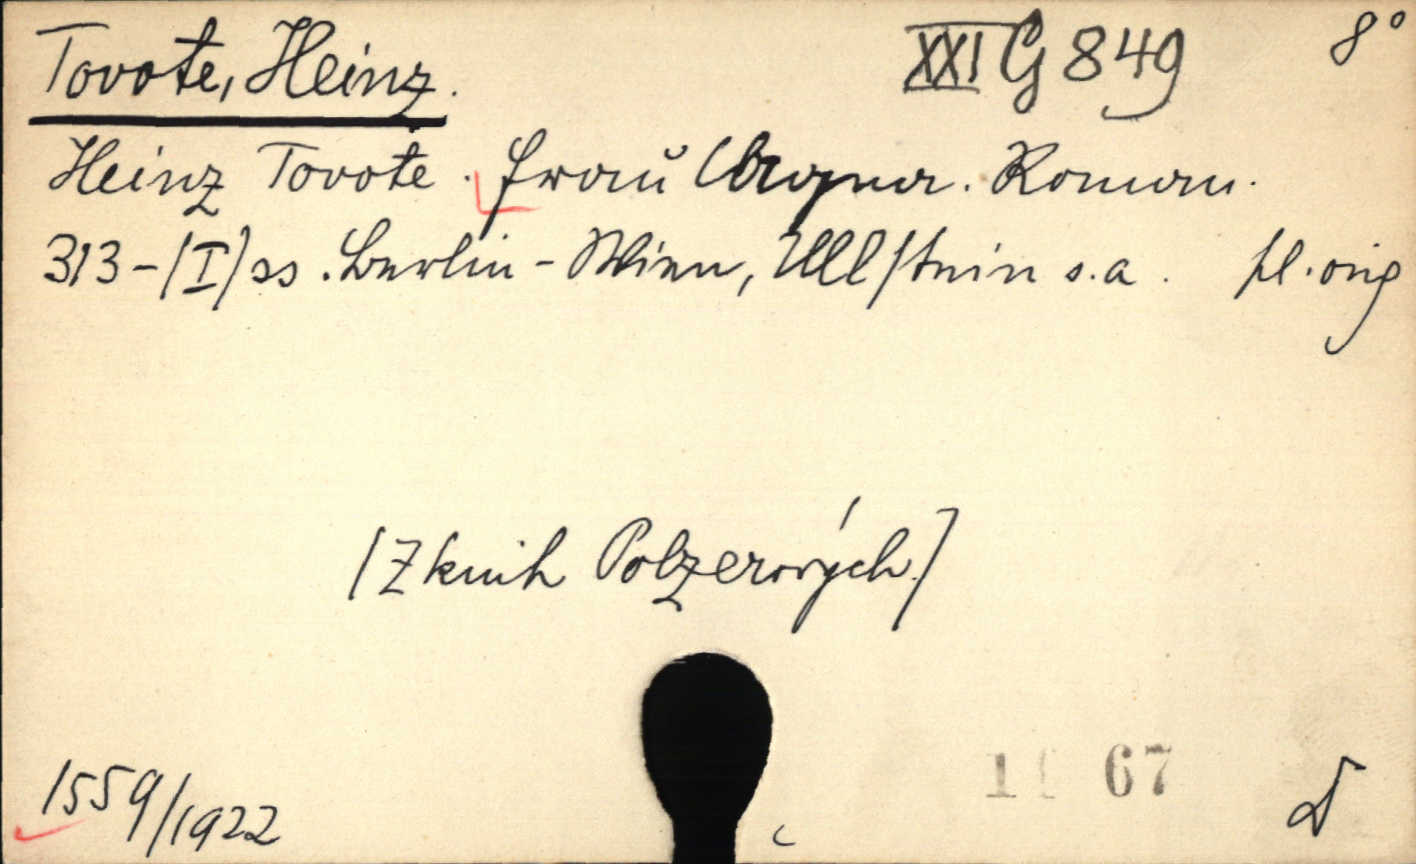 Tovote, Heinz. XXI G 849 8°
Heinz Tovote. Frau Agna. Roman.
313-(I) ss. Berlin-Wien, Ullstein s.a. pl. orig
(Z knih Polzerových.)
1 67
1559/1922